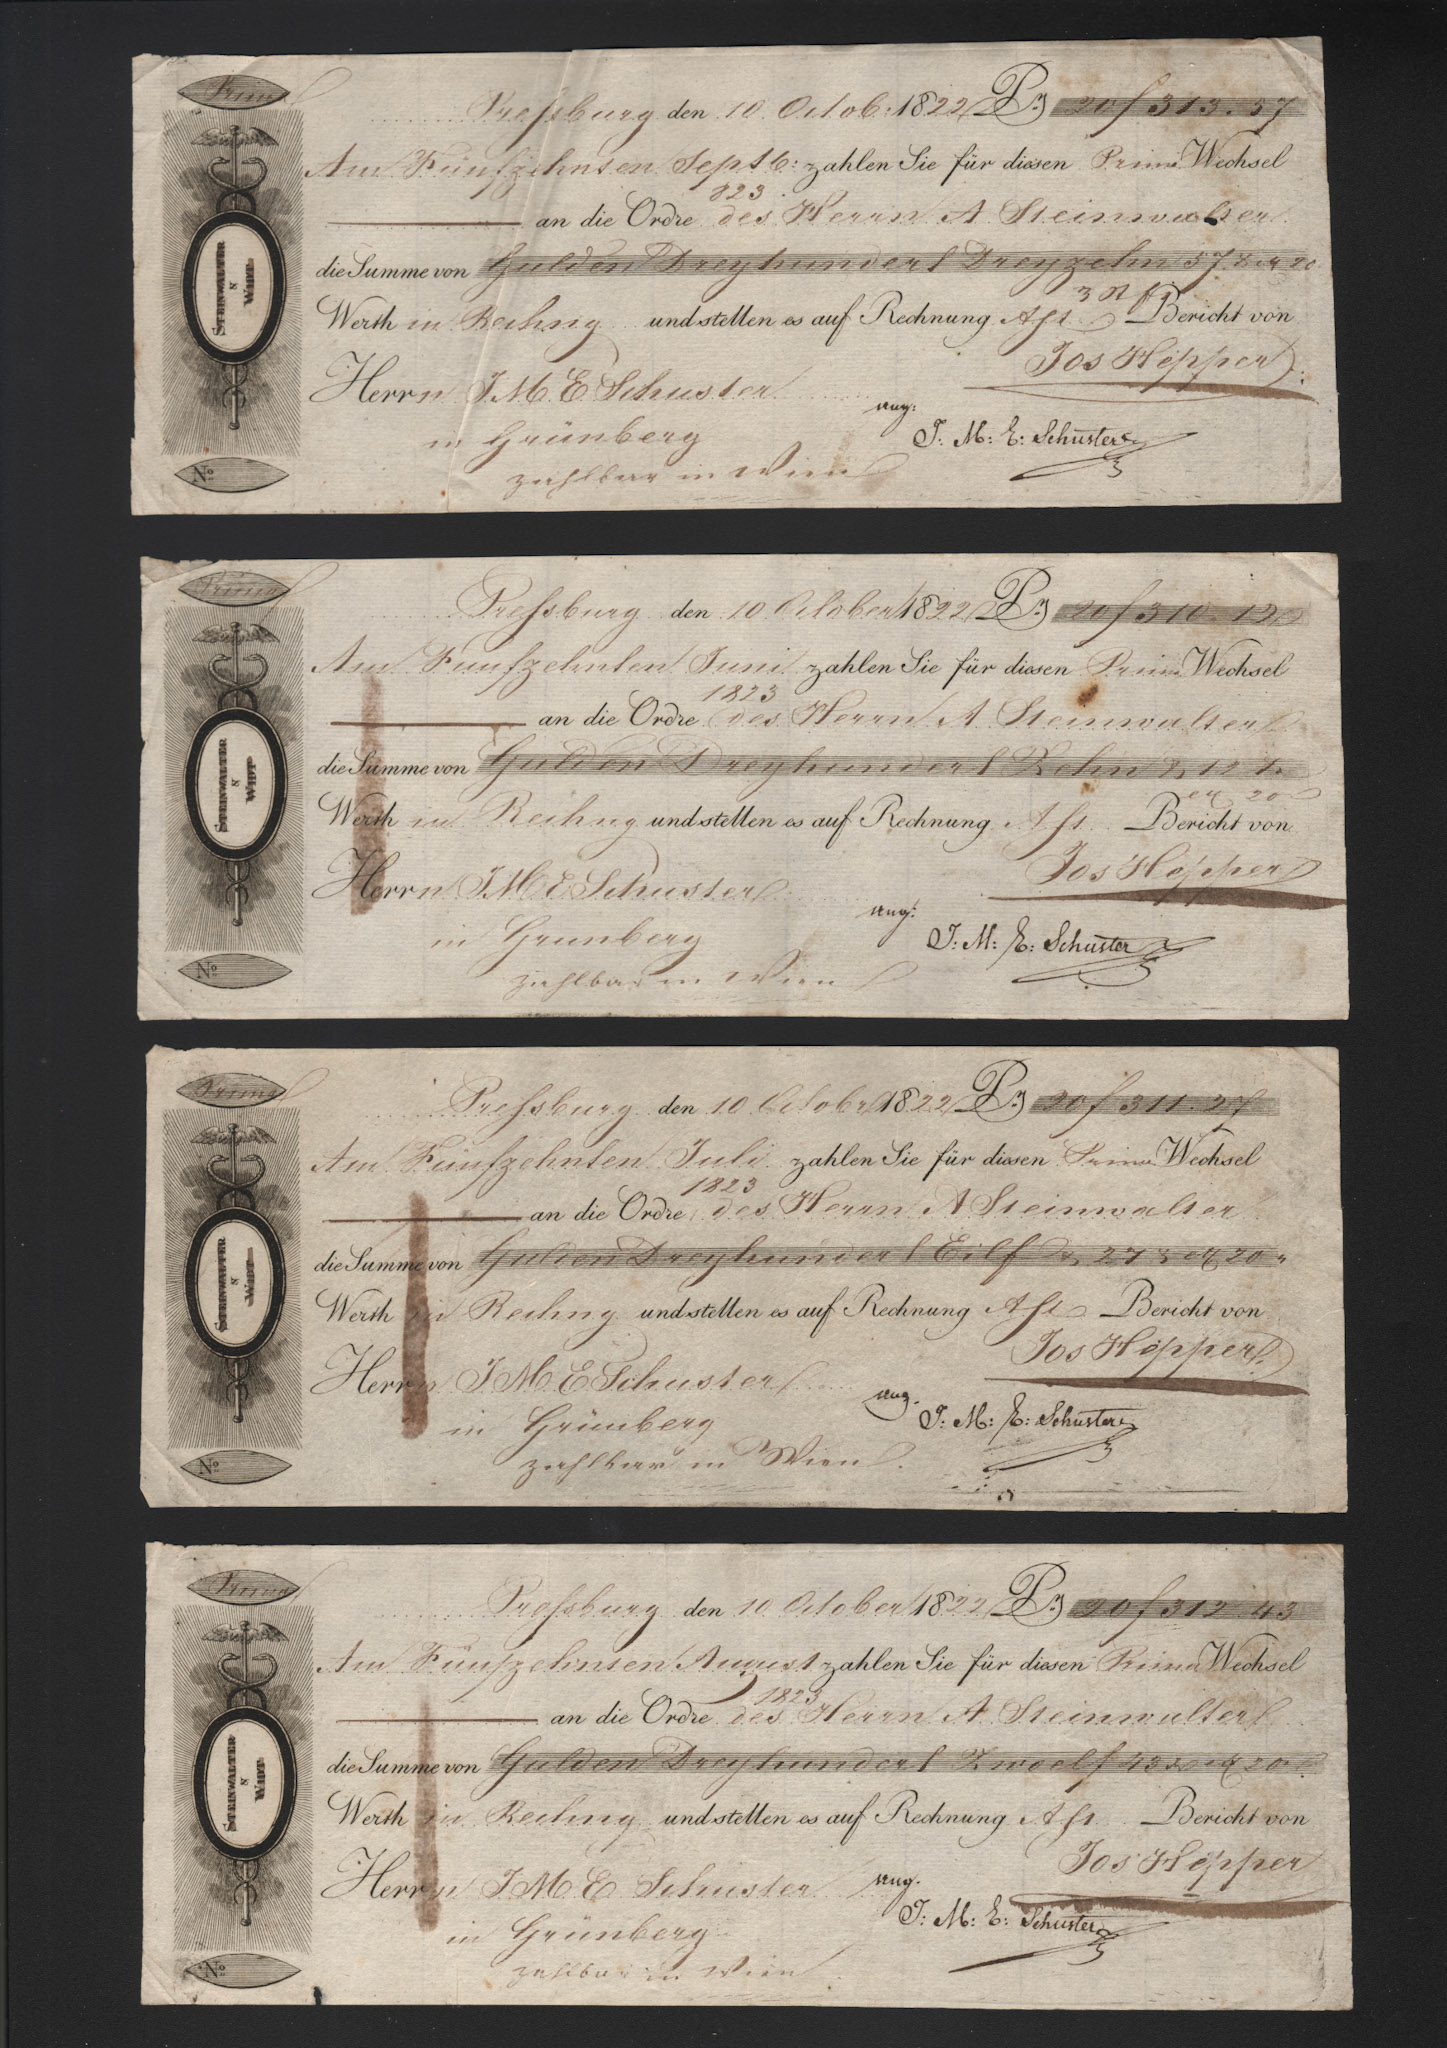 Prima
Pressburg den 10 Octob: 1822 Pr 20 f 313. 57
Am Fünfzehnten Septb: zahlen Sie für diesen Prima Wechsel
823
an die Ordre des Herrn A Steinwalter
die Summe von Gulden Dreyhundert Dreyzehn 57
Werth in Rechng und stellen es auf Rechnung Bericht von
Jos Hepper
Herrn J M E Schuster
ang:
J: M: E: Schuster
in Grünberg
zahlbar in Wien
STEINWALTER
&
WIDT
No
Prima
Pressburg den 10 October 1822 Pr 20 f 310. 12
Am Fünfzehnten Juni zahlen Sie für diesen Prima Wechsel
1823
an die Ordre des Herrn A Steinwalter
die Summe von Gulden Dreyhundert Zehn & 12
Werth in Rechng und stellen es auf Rechnung Bericht von
Jos Hepper
Herrn J M E Schuster
ang:
J: M: E: Schuster
in Grunberg
zahlbar in Wien
STEINWALTER
&
WIDT
No
Prima
Pressburg den 10 Octobr 1822 Pr 20 f 311. 27
Am Fünfzehnten Juli zahlen Sie für diesen Prima Wechsel
1823
an die Ordre des Herrn A Steinwalter
die Summe von Gulden Dreyhundert Eilf & 27
Werth in Rechng und stellen es auf Rechnung Bericht von
Jos Hepper
Herrn J M E Schuster
ang.
J: M: E: Schuster
in Grünberg
zahlbar in Wien
STEINWALTER
&
WIDT
No
Prima
Pressburg den 10 October 1822 Pr 20 f 312 43
Am Fünfzehnten August zahlen Sie für diesen Prima Wechsel
1823
an die Ordre des Herrn A Steinwalter
die Summe von Gulden Dreyhundert Zwoelf 43
Werth in Rechng und stellen es auf Rechnung Bericht von
Jos Hepper
Herrn J M E Schuster
ang.
J: M: E: Schuster
in Grünberg
zahlbar in Wien
STEINWALTER
&
WIDT
No